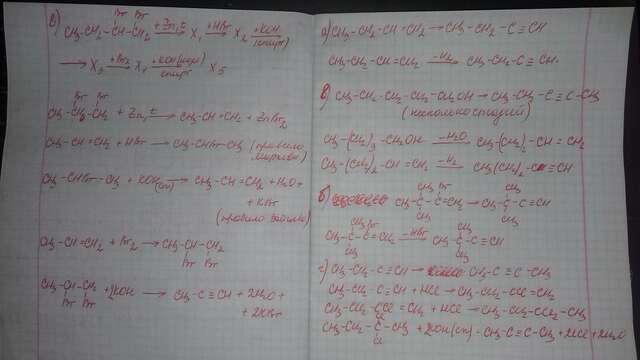 е) CH₃-CH₂-CH-CH₂ +Zn,t→ X₁ +HBr→ X₂ +KOH (спирт)
Br Br
→ X₃ +Br₂→ X₄ +KOH(изб) спирт→ X₅
Br Br
CH₃-CH-CH₂ + Zn, t → CH₃-CH=CH₂ + ZnBr₂
CH₃-CH=CH₂ + HBr → CH₃-CHBr-CH₃ (правило
CH₃-CHBr-CH₃ + KOH(сп) → CH₃-CH=CH₂ + H₂O +
+ KBr
(правило Зайцева)
CH₃-CH=CH₂ + Br₂ → CH₃-CH-CH₂
Br Br
CH₃-CH-CH₂ + 2KOH → CH₃-C≡CH + 2H₂O +
Br Br
+ 2KBr
а) CH₃-CH₂-CH=CH₂ → CH₃-CH₂-C≡CH
CH₃-CH₂-CH=CH₂ -H₂→ CH₃-CH₂-C≡CH
в) CH₃-CH₂-CH₂-CH₂-CH₂OH → CH₃-CH₂-C≡C-CH₃
(несколько стадий)
CH₃-(CH₂)₃-CH₂OH -H₂O→ CH₃-(CH₂)₂-CH=CH₂
CH₃-(CH₂)₂-CH=CH₂ -H₂→ CH₃(CH₂)₂-C≡CH
CH₃ Br CH₃
б) CH₃-C-C=CH₂ → CH₃-C-C≡CH
CH₃ CH₃
CH₃ Br CH₃
CH₃-C-C=CH₂ -HBr→ CH₃-C-C≡CH
CH₃ CH₃
г) CH₃-CH₂-C≡CH → CH₃-C≡C-CH₃
CH₃-CH₂-C≡CH + HCl → CH₃-CH₂-CCl=CH₂
CH₃-CH₂-CCl=CH₂ + HCl → CH₃-CH₂-CCl₂-CH₃
Cl
CH₃-CH₂-C-CH₃ + 2KOH(сп) - CH₃-C≡C-CH₃ + 2KCl + 2H₂O
Cl